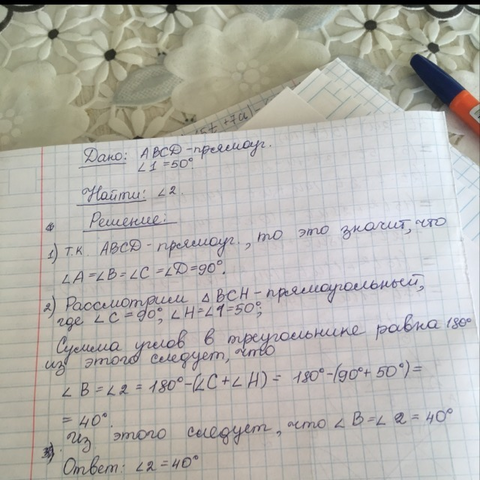 57+7a)
Дано: ABCD - прямоуг.
∠1 = 50°.
Найти: ∠2.
Решение:
1) т.к. ABCD - прямоуг., то это значит, что
∠A = ∠B = ∠C = ∠D = 90°.
2) Рассмотрим △BCH - прямоугольный,
где ∠C = 90°; ∠H = ∠1 = 50°;
Сумма углов в треугольнике равна 180°
из этого следует, что
∠B = ∠2 = 180° - (∠C + ∠H) = 180° - (90° + 50°) =
= 40°.
Из этого следует, что ∠B = ∠2 = 40°
Ответ: ∠2 = 40°